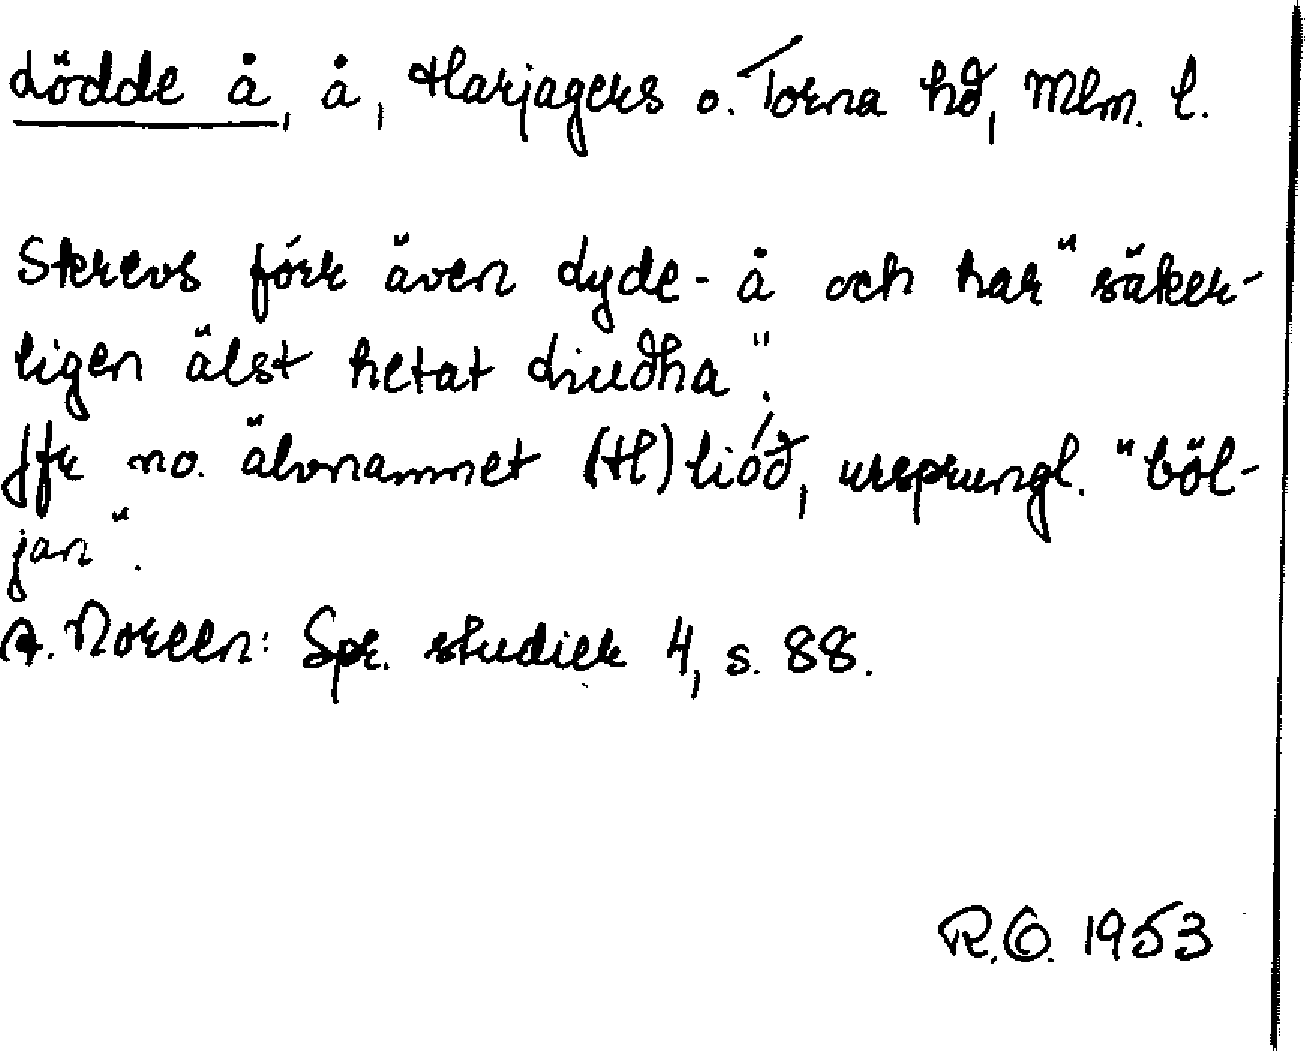 Lödde å, å, Harjagers o. Torna hd, Mlm. l.
Skrevs förr även Lyde-å och har "säker-
ligen älst hetat Liudha".
Jfr no. älvnamnet (H)lióð, ursprungl. "böl-
jan".
A. Noreen: Spr. studier 4, s. 88.
R.O. 1953